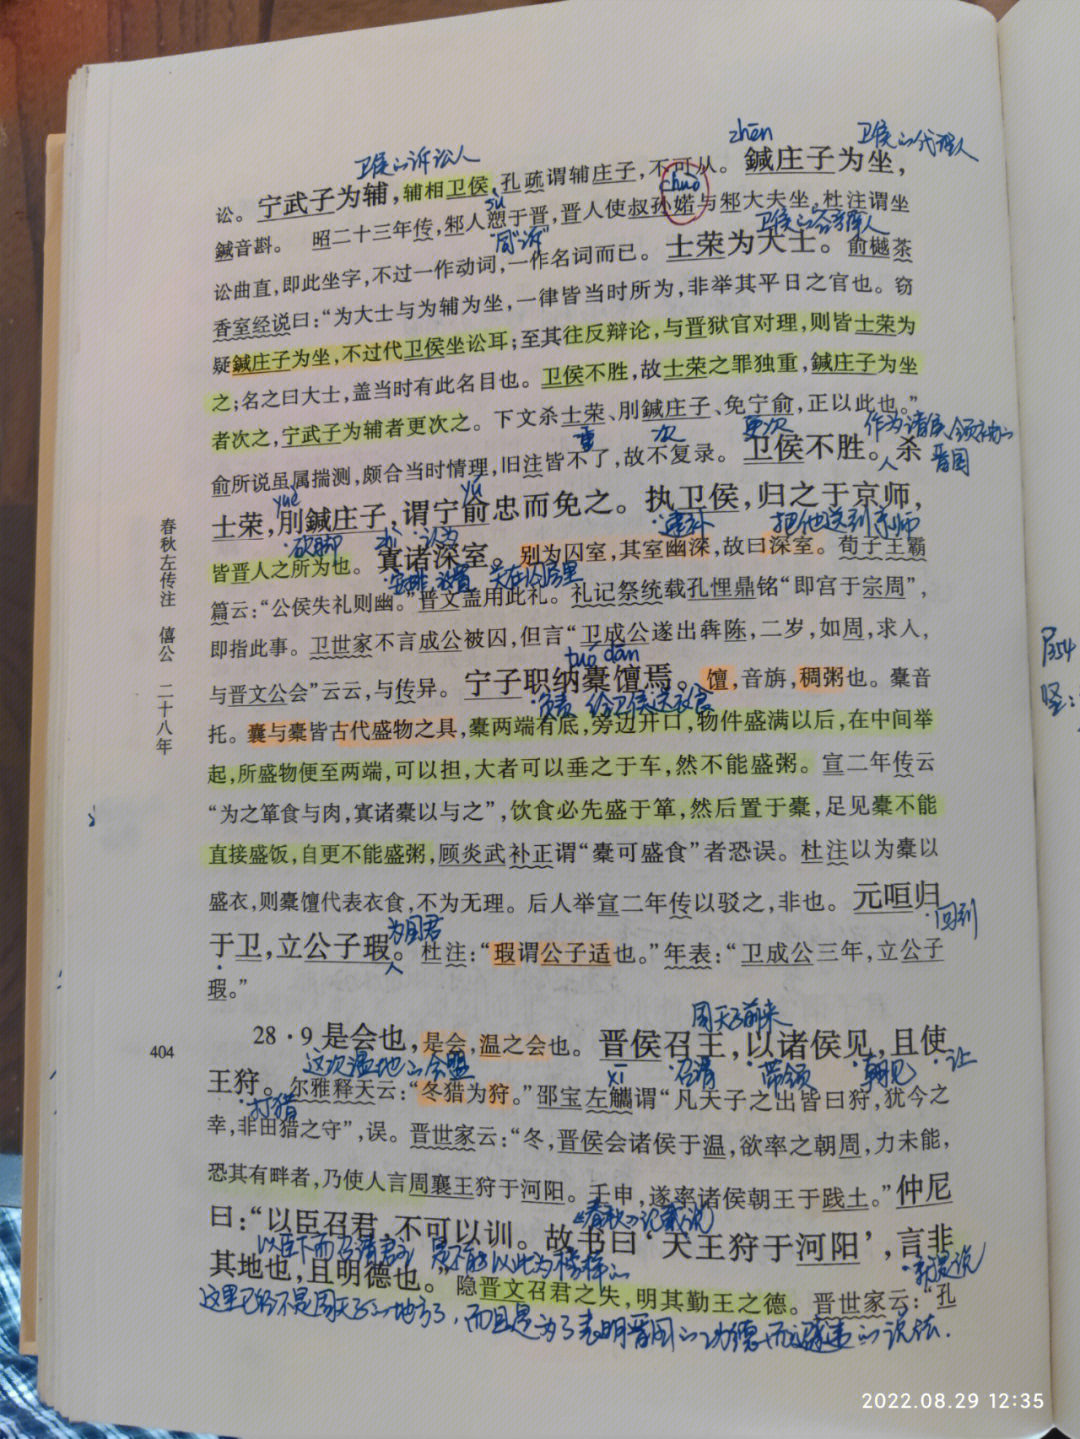 zhēn 卫侯的代理人
卫侯的诉讼人
讼。宁武子为辅，辅相卫侯，孔疏谓辅庄子，不可从。鍼庄子为坐，
sù chuò
鍼音斟。 昭二十三年传，邾人愬于晋，晋人使叔孙婼与邾大夫坐，杜注谓坐
同“诉”
讼曲直，即此坐字，不过一作动词，一作名词而已。士荣为大士。俞樾茶
香室经说曰：“为大士与为辅为坐，一律皆当时所为，非举其平日之官也。窃
疑鍼庄子为坐，不过代卫侯坐讼耳；至其往反辩论，与晋狱官对理，则皆士荣为
之；名之曰大士，盖当时有此名目也。卫侯不胜，故士荣之罪独重，鍼庄子为坐
者次之，宁武子为辅者更次之。下文杀士荣、刖鍼庄子、免宁俞，正以此也。”
重 次 更次
俞所说虽属揣测，颇合当时情理，旧注皆不了，故不复录。卫侯不胜。杀
人 晋国
yuè yú
士荣，刖鍼庄子，谓宁俞忠而免之。执卫侯，归之于京师，
·砍脚 zhì ·认为 ·逮补 把他送到京师
皆晋人之所为也。寘诸深室。别为囚室，其室幽深，故曰深室。荀子王霸
安排、放置
篇云：“公侯失礼则幽。”晋文盖用此礼。礼记祭统载孔悝鼎铭“即宫于宗周”，
即指此事。卫世家不言成公被囚，但言“卫成公遂出犇陈，二岁，如周，求人，
tuó dān
与晋文公会”云云，与传异。宁子职纳橐饘焉。饘，音旃，稠粥也。橐音
·负责 给卫侯送衣食
托。囊与橐皆古代盛物之具，橐两端有底，旁边开口，物件盛满以后，在中间举
起，所盛物便至两端，可以担，大者可以垂之于车，然不能盛粥。宣二年传云
“为之箪食与肉，寘诸橐以与之”，饮食必先盛于箪，然后置于橐，足见橐不能
直接盛饭，自更不能盛粥，顾炎武补正谓“橐可盛食”者恐误。杜注以为橐以
盛衣，则橐饘代表衣食，不为无理。后人举宣二年传以驳之，非也。元咺归
·回到
为国君
于卫，立公子瑕。杜注：“瑕谓公子适也。”年表：“卫成公三年，立公子
人
瑕。”
周天子前来
28·9 是会也，是会，温之会也。晋侯召王，以诸侯见，且使
这次温地的会盟 xī ·召请 ·带领 ·朝见 ·让
王狩。尔雅释天云：“冬猎为狩。”邵宝左觿谓“凡天子之出皆曰狩，犹今之
·打猎
幸，非田猎之守”，误。晋世家云：“冬，晋侯会诸侯于温，欲率之朝周，力未能，
恐其有畔者，乃使人言周襄王狩于河阳。壬申，遂率诸侯朝王于践土。”仲尼
《春秋》记载说
曰：“以臣召君，不可以训。故书曰‘天王狩于河阳’，言非
以臣下而召请君主，是不能以此为榜样的 ·就是说
其地也，且明德也。”隐晋文召君之失，明其勤王之德。晋世家云：“孔
这里已经不是周天子的地方了，而且是为了表明晋国的功德而 的说法.
春秋左传注 僖公 二十八年
404
P354
2022.08.29 12:35